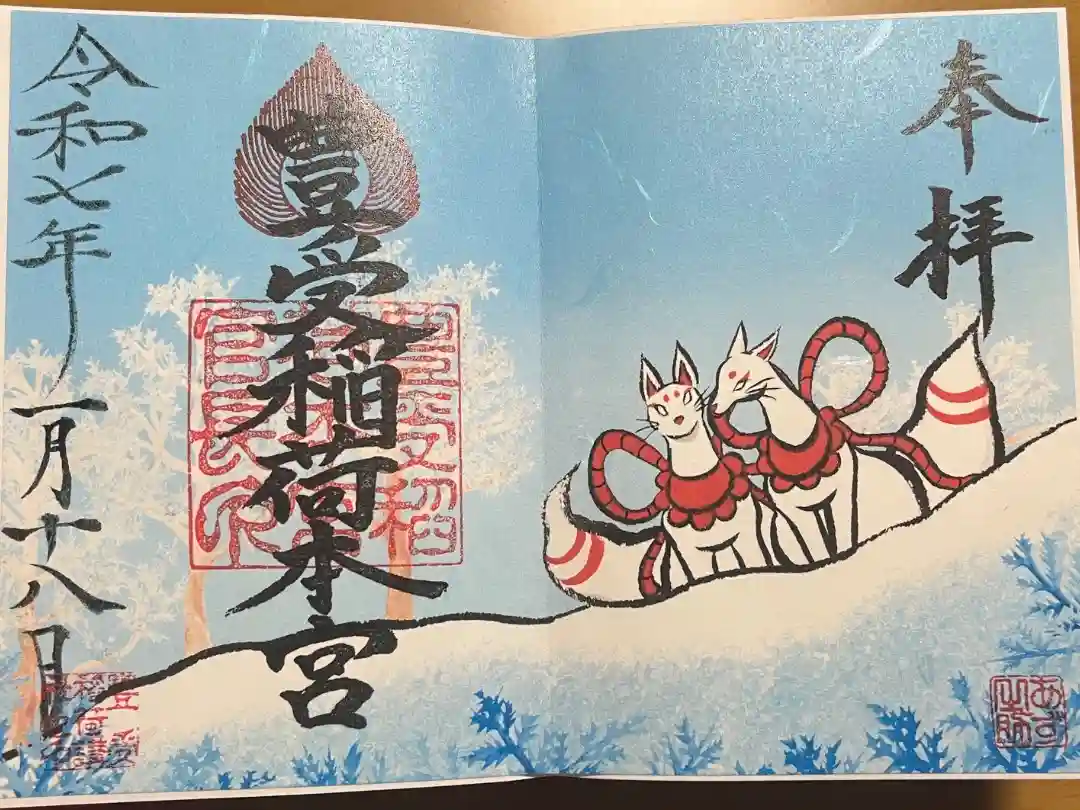 奉拝
豊受稲荷本宮
令和七年一月十八日